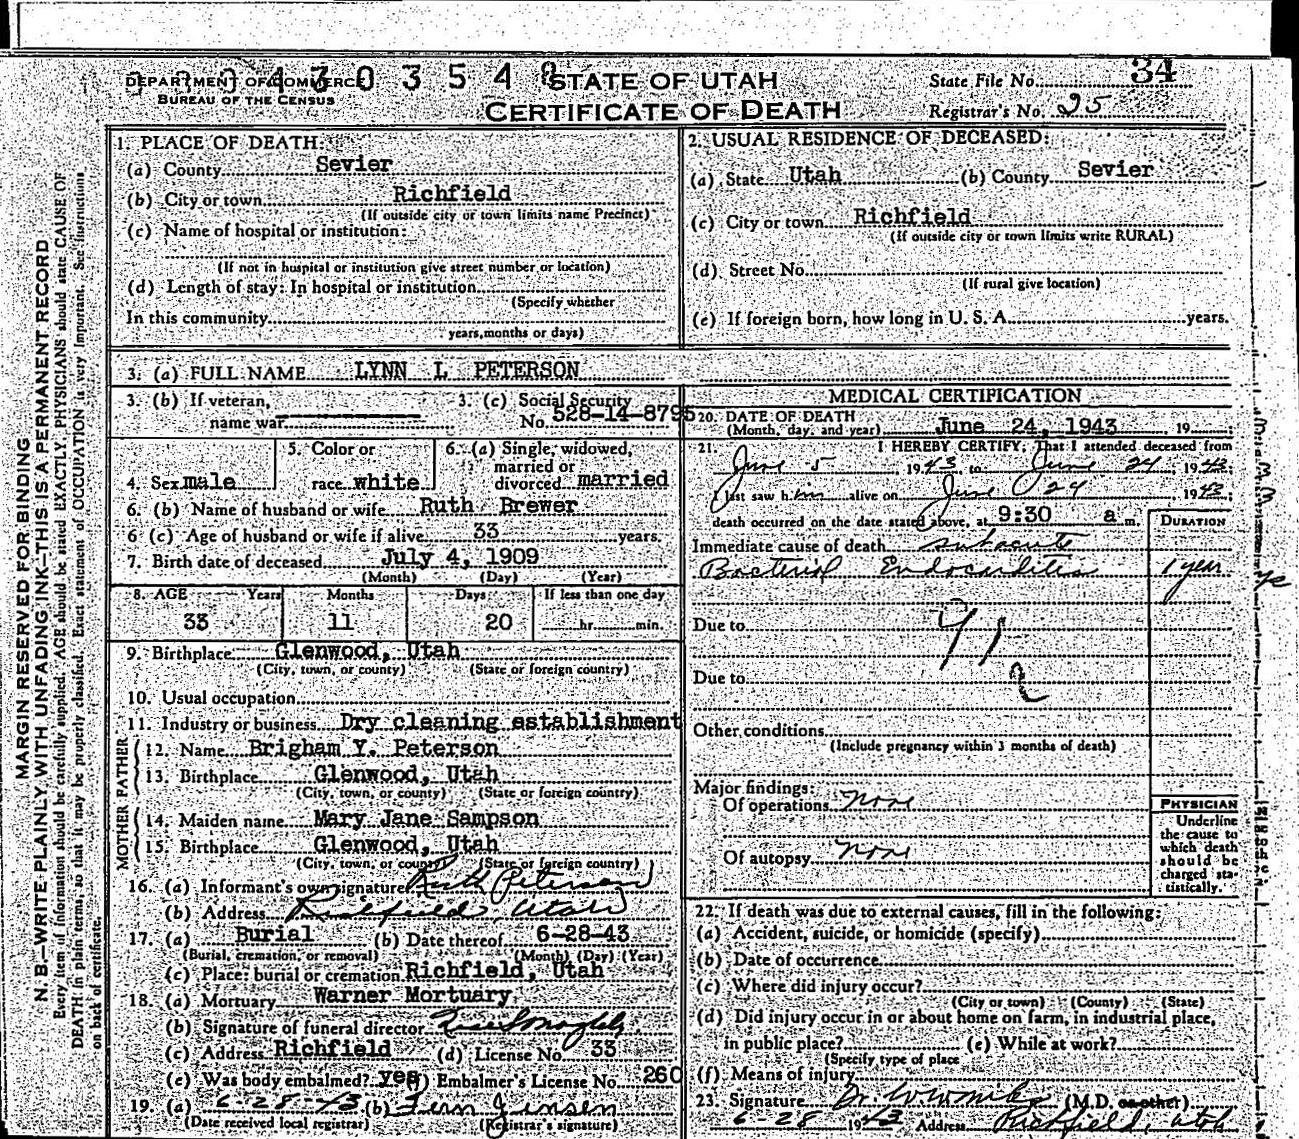 DEPARTMENT OF COMMERCE
BUREAU OF THE CENSUS
4 3 0 3 5 4
STATE OF UTAH
CERTIFICATE OF DEATH
State File No. 34
Registrar's No. 25
MARGIN RESERVED FOR BINDING
N. B.—WRITE PLAINLY WITH UNFADING INK—THIS IS A PERMANENT RECORD
Every item of information should be carefully supplied. AGE should be stated EXACTLY. PHYSICIANS should state CAUSE OF
DEATH in plain terms, so that it may be properly classified. Exact statement of OCCUPATION is very important. See instructions
on back of certificate.
1. PLACE OF DEATH:
(a) County Sevier
(b) City or town Richfield
(If outside city or town limits name Precinct)
(c) Name of hospital or institution:
(If not in hospital or institution give street number or location)
(d) Length of stay: In hospital or institution
(Specify whether
In this community
years, months or days)
2. USUAL RESIDENCE OF DECEASED:
(a) State Utah (b) County Sevier
(c) City or town Richfield
(If outside city or town limits write RURAL)
(d) Street No.
(If rural give location)
(e) If foreign born, how long in U. S. A. years.
3. (a) FULL NAME LYNN L PETERSON
3. (b) If veteran,
name war
3. (c) Social Security
No. 528-14-8795
4. Sex male
5. Color or
race white
6. (a) Single, widowed,
married or
divorced married
6. (b) Name of husband or wife Ruth Brewer
6 (c) Age of husband or wife if alive 33 years.
7. Birth date of deceased July 4, 1909
(Month) (Day) (Year)
8. AGE Years Months Days If less than one day
33 11 20 hr. min.
9. Birthplace Glenwood, Utah
(City, town, or county) (State or foreign country)
10. Usual occupation
11. Industry or business Dry cleaning establishment
FATHER
12. Name Brigham Y. Peterson
13. Birthplace Glenwood, Utah
(City, town, or county) (State or foreign country)
MOTHER
14. Maiden name Mary Jane Sampson
15. Birthplace Glenwood, Utah
(City, town, or county) (State or foreign country)
16. (a) Informant's own signature Ruth Peterson
(b) Address Richfield, Utah
17. (a) Burial (b) Date thereof 6-28-43
(Burial, cremation, or removal) (Month) (Day) (Year)
(c) Place: burial or cremation Richfield, Utah
18. (a) Mortuary Warner Mortuary
(b) Signature of funeral director
(c) Address Richfield (d) License No. 33
(e) Was body embalmed? yes (f) Embalmer's License No. 260
19. (a) 6-28-43 (b) Fern Jensen
(Date received local registrar) (Registrar's signature)
MEDICAL CERTIFICATION
20. DATE OF DEATH
(Month, day, and year) June 24, 1943, 19
21. I HEREBY CERTIFY, That I attended deceased from
June 5 1943 to June 24 1943
I last saw him alive on June 24 1943
death occurred on the date stated above, at 9:30 a m.
DURATION
Immediate cause of death subacute
Bacterial Endocarditis 1 year
Due to
91
2
Due to
Other conditions
(Include pregnancy within 3 months of death)
Major findings:
Of operations none
Of autopsy none
PHYSICIAN
Underline
the cause to
which death
should be
charged sta-
tistically.
22. If death was due to external causes, fill in the following:
(a) Accident, suicide, or homicide (specify)
(b) Date of occurrence
(c) Where did injury occur?
(City or town) (County) (State)
(d) Did injury occur in or about home on farm, in industrial place,
in public place? (e) While at work?
(Specify type of place
(f) Means of injury
23. Signature (M.D. or other)
6-28 1943 Address Richfield, Utah